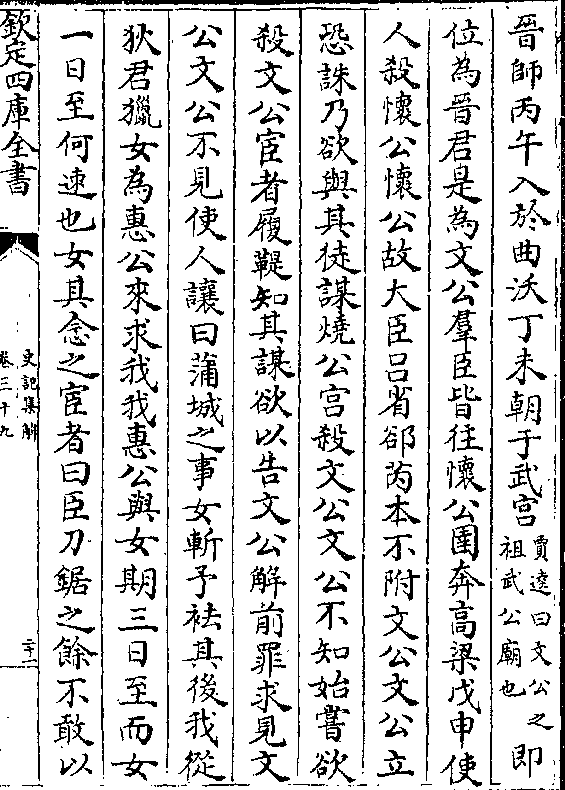 晉師丙午入於曲沃丁未朝于武宫賈逵曰文公之祖武公廟也即
位為晉君是為文公羣臣皆往懷公圉奔高梁戊申使
人殺懷公懷公故大臣吕省郤芮本不附文公文公立
恐誅乃欲與其徒謀燒公宫殺文公文公不知始嘗欲
殺文公宦者履鞮知其謀欲以告文公解前罪求見文
公文公不見使人讓曰蒲城之事女斬予袪其後我從
狄君獵女為惠公來求我我惠公與女期三日至而女
一日至何速也女其念之宦者曰臣刀鋸之餘不敢以
欽定四庫全書
史記集解
卷三十九
二十二